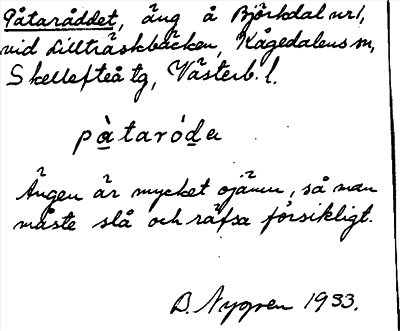 Påtaråddet, äng å Björkdal nr 1,
vid Lillträskbäcken, Kågedalens sn,
Skellefteå tg, Västerb. l.
pàtaróde
Ängen är mycket ojämn, så man
måste slå och räfsa försiktigt.
B. Nygren 1933.